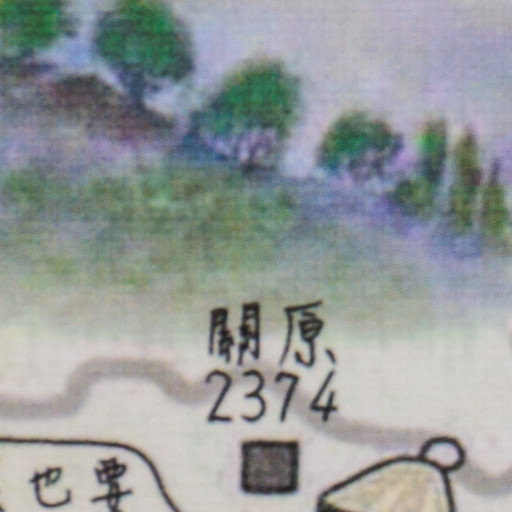 關原
2374
也要